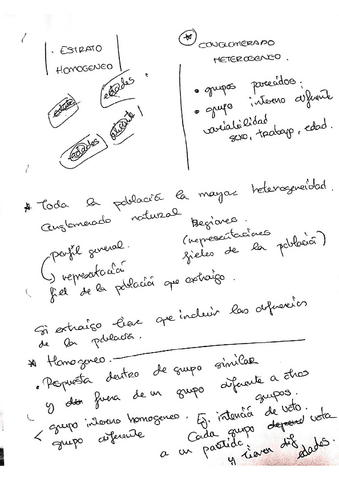 ESTRATO
HOMOGENEO
edades
edades
edades
* CONGLOMERADO
HETEROGENEO.
• grupos parecidos.
• grupo interno diferente
variabilidad
sexo, trabajo, edad.
* Toda la población la mayor heterogeneidad.
Conglomerado natural
Regiones.
perfil general.
(representaciones
fieles de la población)
representación
fiel de la población que extraigo.
Si extraigo tiene que incluir las diferencias
de la población.
* Homogeneo.
• Respuesta dentro de grupo similar
y fuera de un grupo diferente a otros
grupos.
grupo interno homogeneo. Ej. intención de voto.
grupo diferente Cada grupo vota
a un partido
y tienen dif
edades.